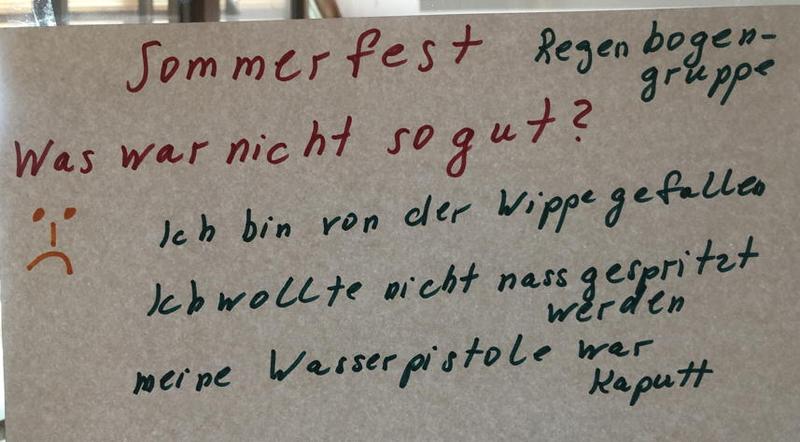 Sommerfest Regenbogen-
gruppe
Was war nicht so gut?
Ich bin von der Wippe gefallen
Ich wollte nicht nass gespritzt
werden
meine Wasserpistole war
kaputt